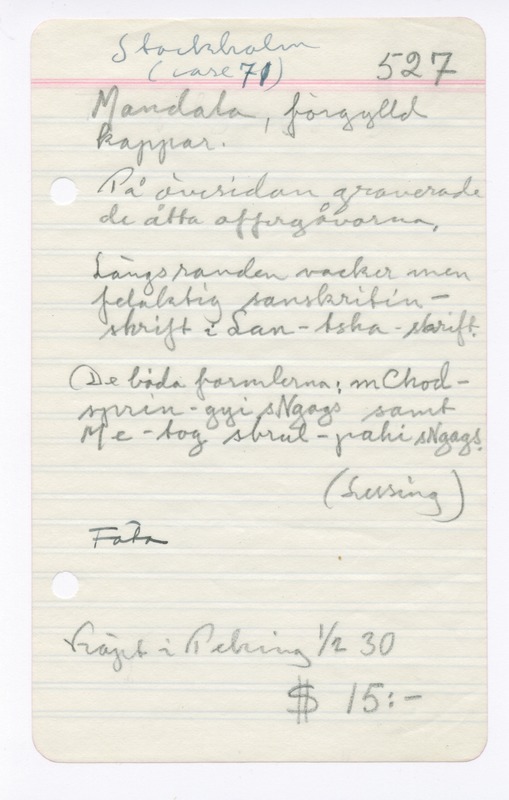 Stockholm
(case 71)
527
Mandala, förgylld
koppar.
På översidan graverade
de åtta offergåvorna.
Längs randen vacker men
felaktig sanskritin-
skrift i Lan-tsha-skrift.
(De båda formlerna: mChod-
sprin-gyi sNgags samt
Me-tog sbrul-pahi sNgags.
(Lessing)
Foto
Köpt i Peking 1/2 30
$ 15:-